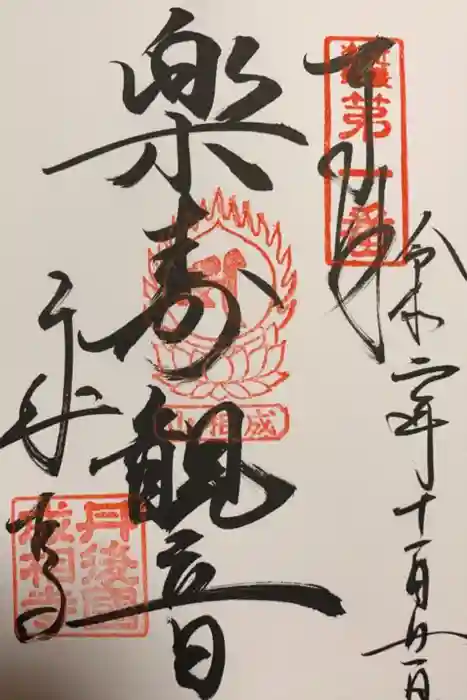 奉拝
第一番
令和二年十一月廿一日
楽寿観音
成相山
成相寺
丹後國
成相寺